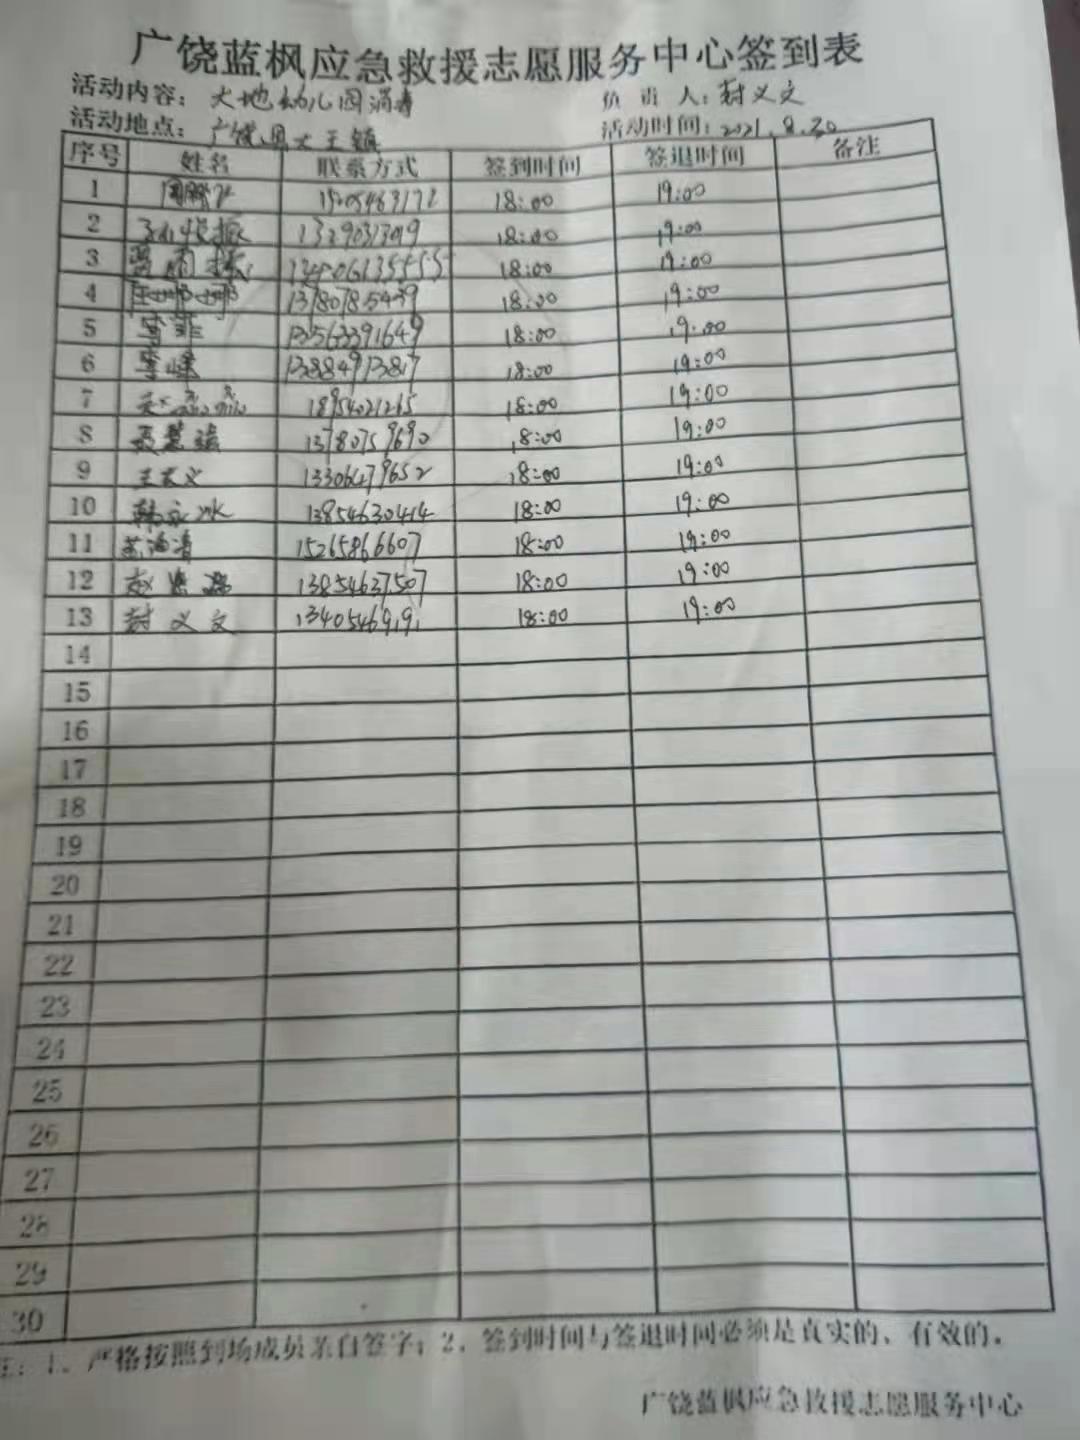 广饶蓝枫应急救援志愿服务中心签到表
活动内容：大地幼儿园消毒 负责人：封义文
活动地点：广饶县大王镇 活动时间：2021.8.30
序号 姓名 联系方式 签到时间 签退时间 备注
1 18:00 19:00
2 18:00 19:00
3 18:00 19:00
4 13780785439 18:00 19:00
5 13563391649 18:00 19:00
6 18:00 19:00
7 18954021265 18:00 19:00
8 13780759690 18:00 19:00
9 13306479652 18:00 19:00
10 韩永冰 13854630414 18:00 19:00
11 15265866607 18:00 19:00
12 赵 13854637507 18:00 19:00
13 封义文 13405469191 18:00 19:00
14
15
16
17
18
19
20
21
22
23
24
25
26
27
28
29
30
注：1、严格按照到场成员亲自签字；2、签到时间与签退时间必须是真实的、有效的。
广饶蓝枫应急救援志愿服务中心